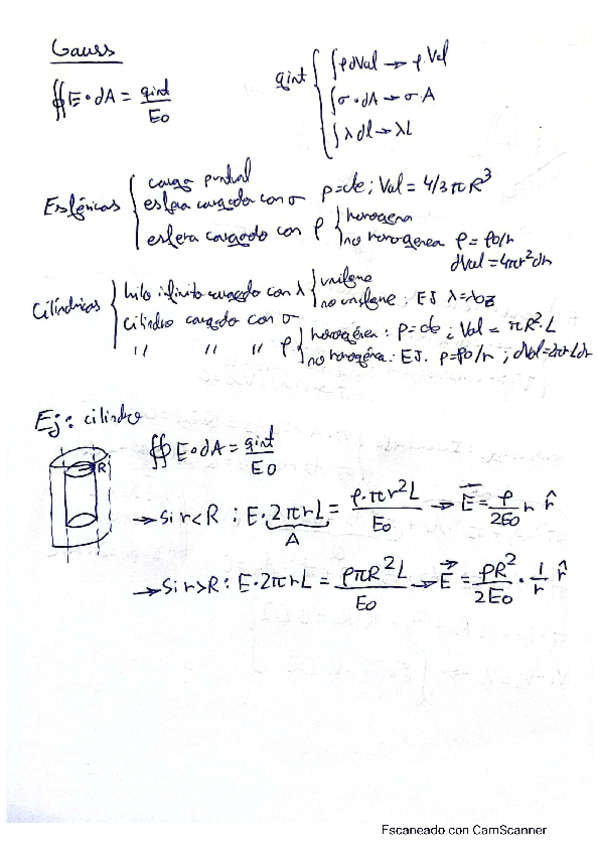 Gauss
∯ E • dA = qint/E0
qint { ∫ρdVol → ρ.Vol
∫σ • dA → σ.A
∫λ dl → λL
Esféricas { carga puntual
esfera cargada con σ ρ=cte ; Vol = 4/3 π R^3
esfera cargada con ρ { homogénea
no homogénea ρ = ρ0/r
dVol = 4πr^2dr
Cilíndricas { hilo infinito cargado con λ { uniforme
no uniforme : EJ λ=λ0z
cilindro cargado con σ
" " " ρ { homogénea : ρ=cte ; Vol = πR^2.L
no homogénea : EJ. ρ=ρ0/r ; dVol=2πrLdr
Ej: cilindro
R
∯ E • dA = qint/E0
→ Si r<R : E. 2πrL = ρ.πr^2L/E0 → E = ρ/2E0 r r̂
A
→ Si r>R : E.2πrL = ρπR^2L/E0 → E = ρR^2/2E0 . 1/r r̂
Escaneado con CamScanner